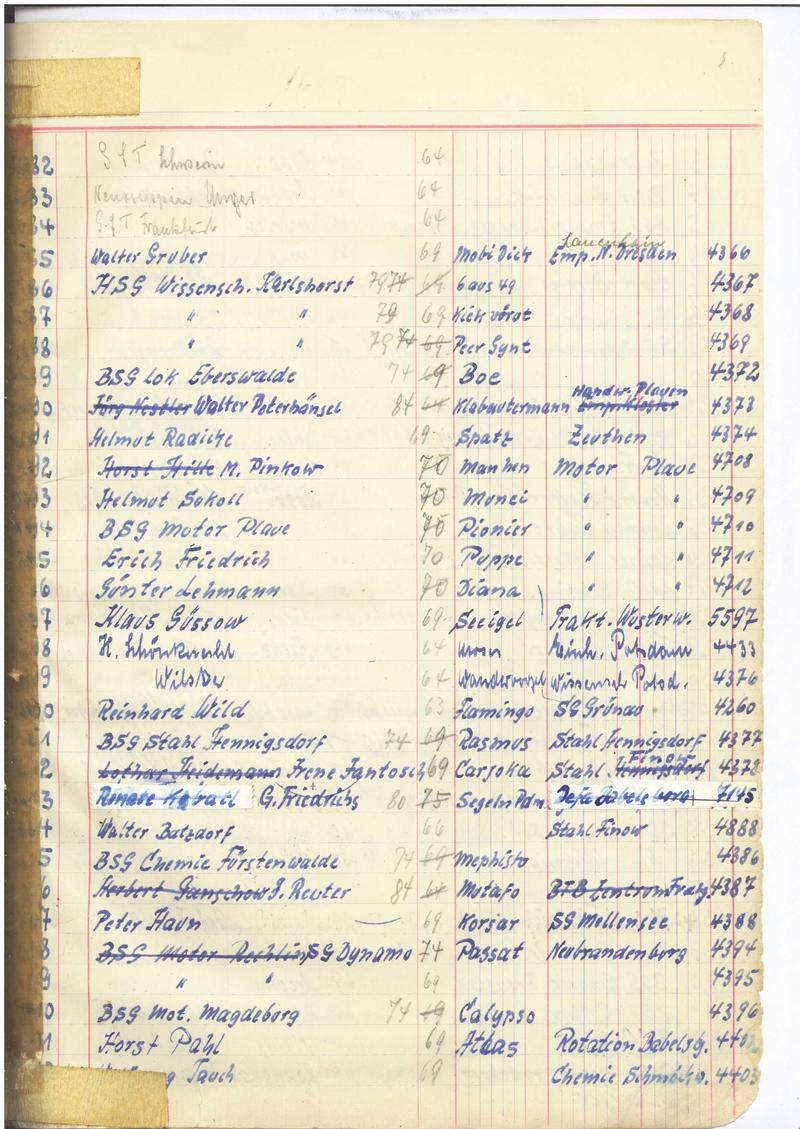 82 GST Schwerin 64
83 Neuruppin Unger 64
84 GST Frankfurt 64
Lauenhain
85 Walter Gruber 69 Mobi Dick Emp. N. Dresden 4366
86 HSG Wissensch. Karlshorst 79 74 69 6 aus 49 4367
87 " " 79 69 Kiek vörut 4368
88 " " 79 74 69 Peer Gynt 4369
89 BSG Lok Eberswalde 74 69 Boe 4372
Handw. Plauen
90 Jörg Nestler Walter Poterhänsel 84 64 Klabautermann Emp. Kloster 4373
91 Helmut Radicke 69 Spatz Zeuthen 4374
92 Horst Hille M. Pinkow 70 Manken Motor Plaue 4708
93 Helmut Sokoll 70 Munci " " 4709
94 BSG Motor Plaue 70 Pionier " " 4710
95 Erich Friedrich 70 Puppe " " 4711
96 Günter Lehmann 70 Diana " " 4712
97 Klaus Güssow 69 Seeigel Trakt. Wusterw. 5597
98 64 Potsdam 4433
99 64 Wandervogel Wissensch. Potsd. 4376
00 Reinhard Wild 63 Flamingo SG Grünau 4260
01 BSG Stahl Hennigsdorf 74 69 Rasmus Stahl Hennigsdorf 4377
Finow
2 Lothar Heidemann Irene Jantosch 69 Carioka Stahl Hennigsdorf 4378
3 Renate G. Friedrichs 80 75 Segeln Pdm. Defa Babelsberg 7145
4 Walter Batzdorf 66 Stahl Finow 4888
5 BSG Chemie Fürstenwalde 74 69 Mephisto 4386
6 Herbert Ganschow J. Reuter 84 64 Motafo BTB Zentrum 4387
7 Peter Haun 69 Korsar SG Mellensee 4388
8 BSG Motor Rechlin SG Dynamo 74 Passat Neubrandenburg 4394
9 " " 69 4395
10 BSG Mot. Magdeburg 74 69 Calypso 4396
1 Horst Pahl 69 Atlas Rotation Babelsbg. 440
Tauch 69 Chemie Schmöckw. 4403